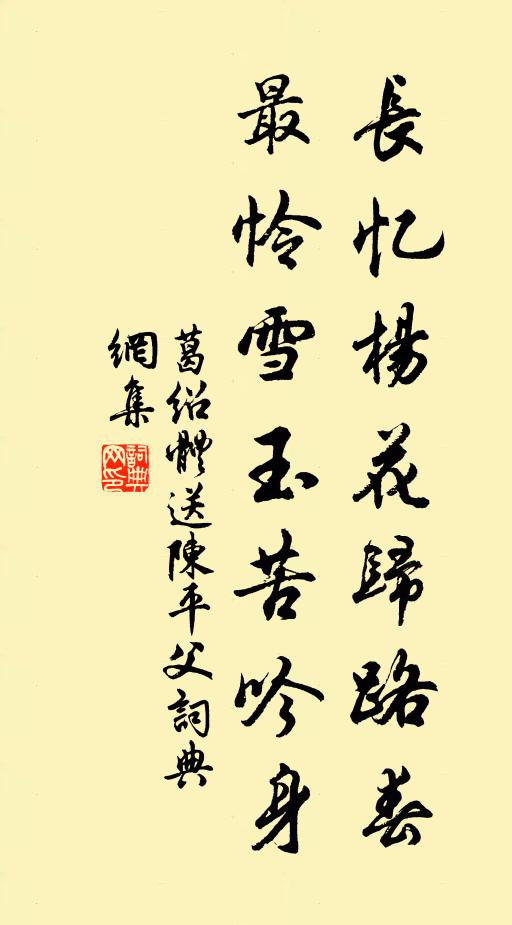 長忆楊花歸路春
最怜雪玉苦吟身
葛绍體送陳平父詞典
網集
詞典网印